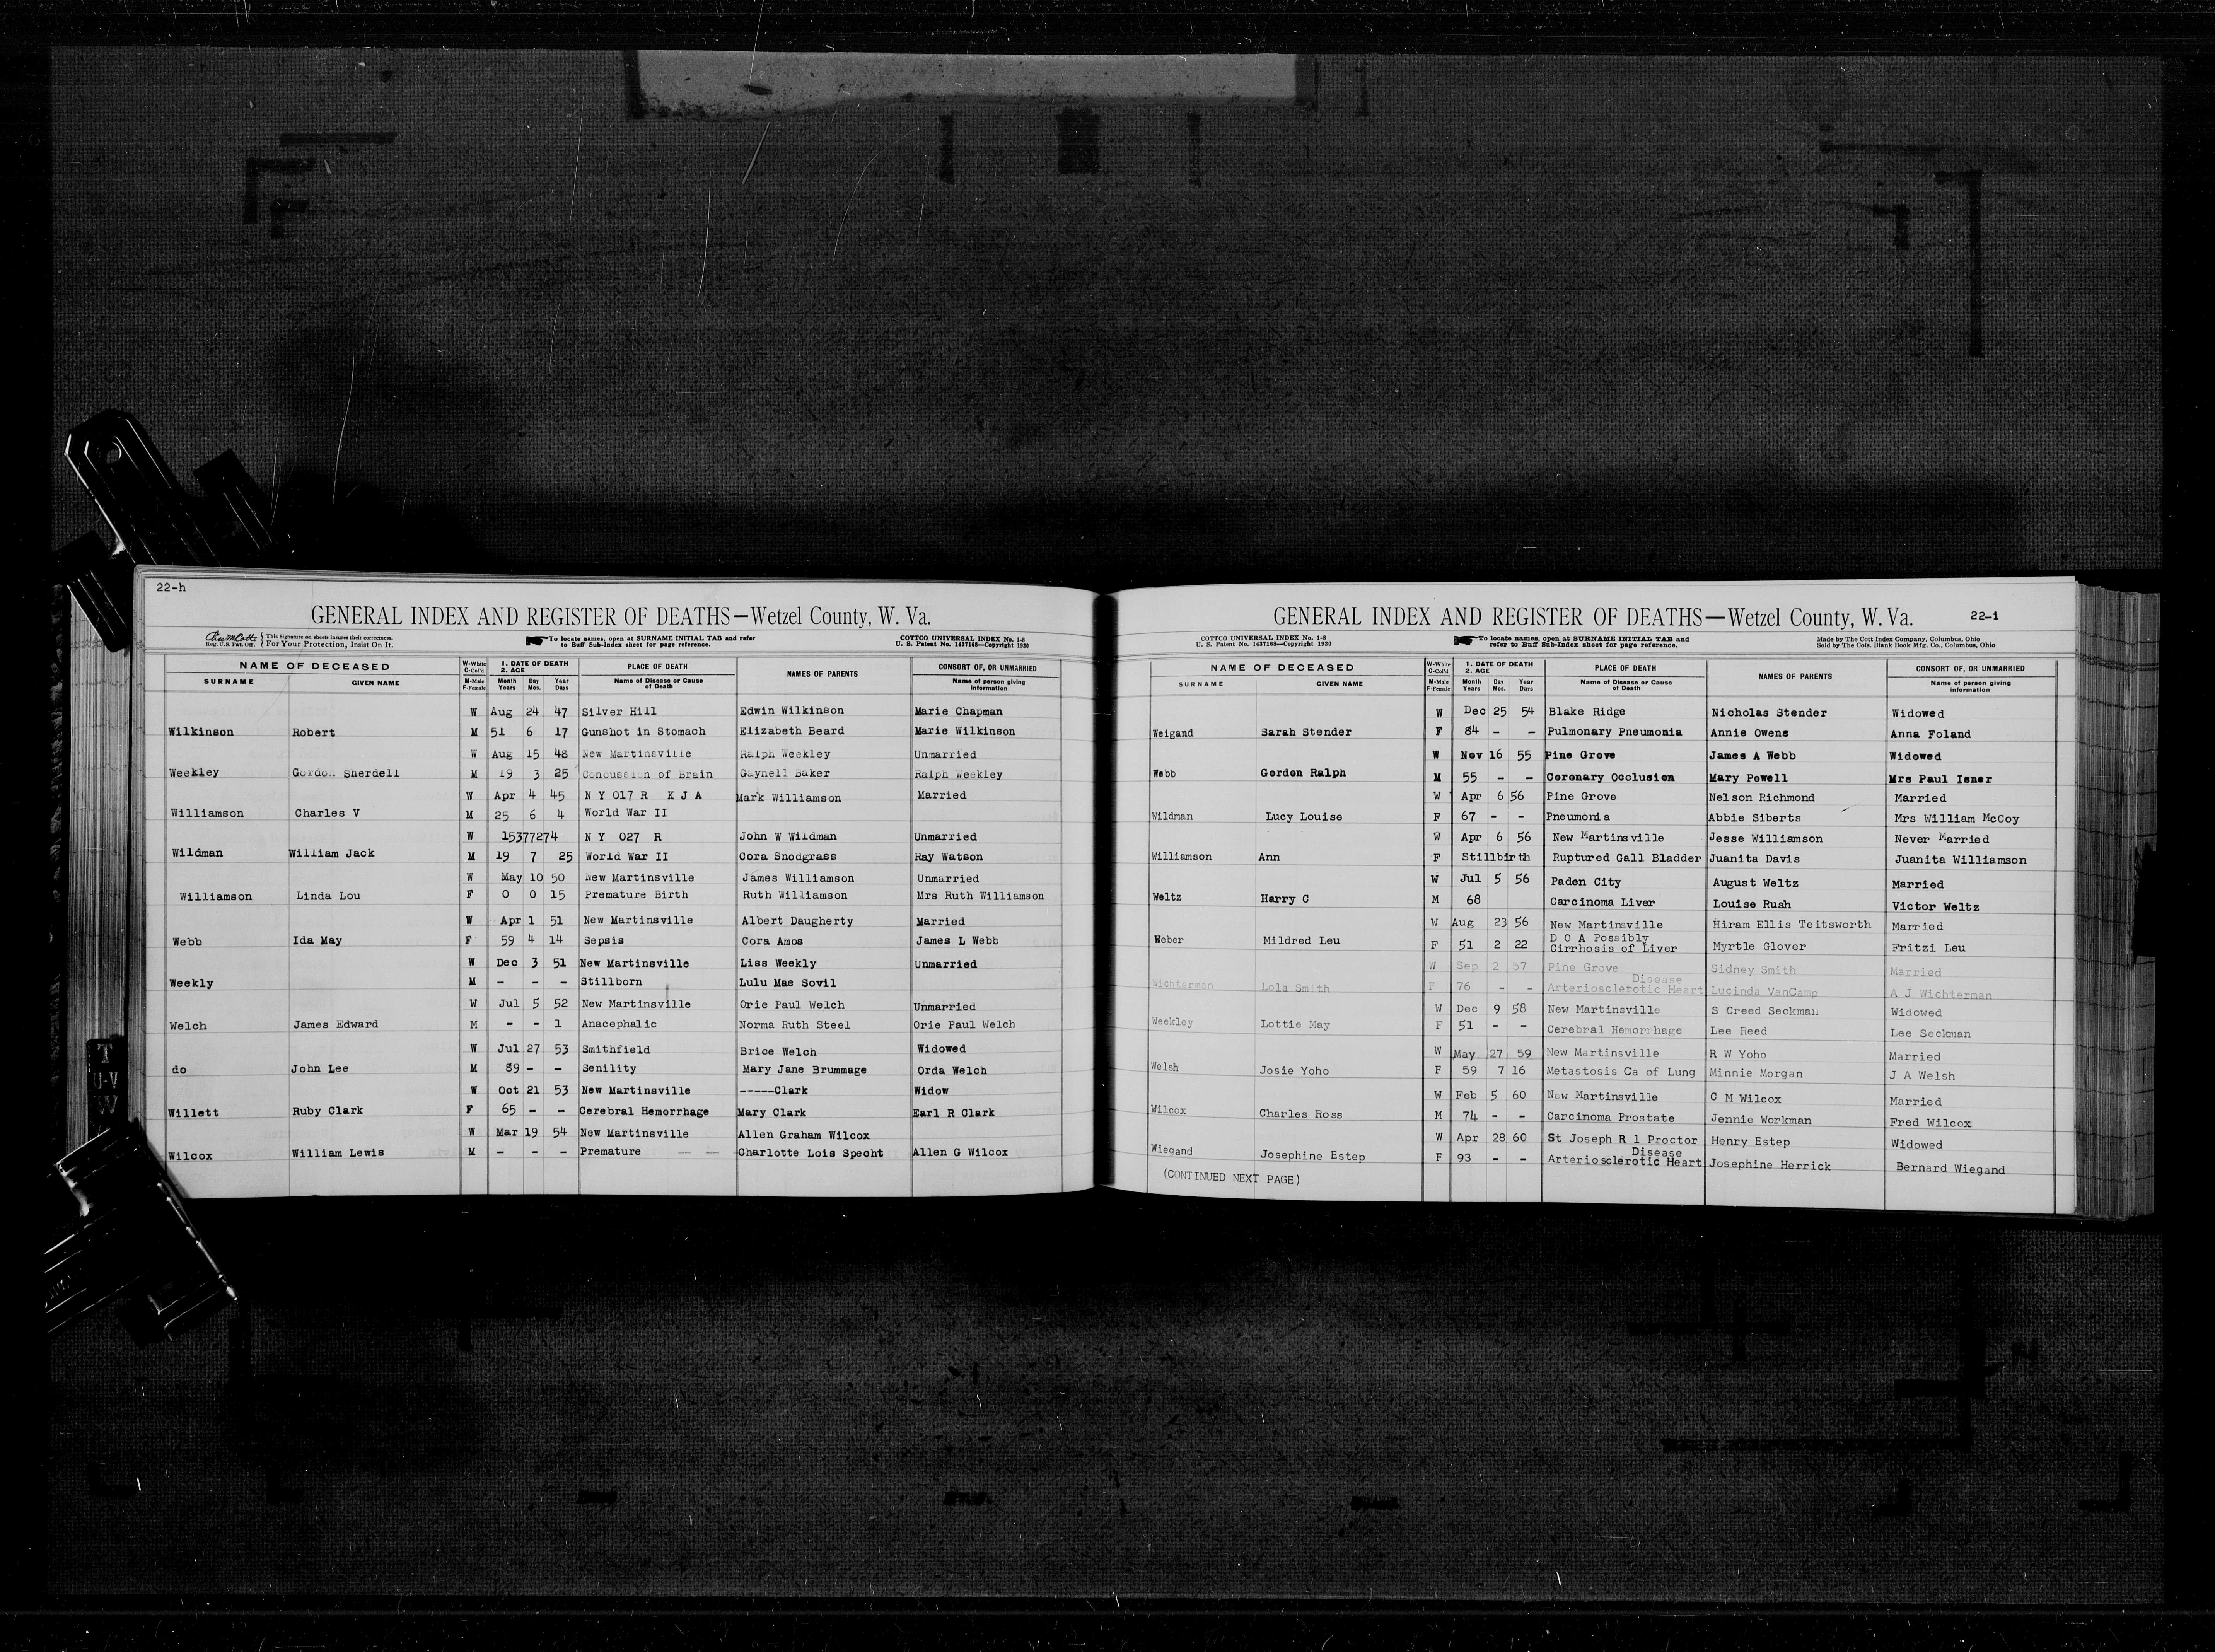 22-h
GENERAL INDEX AND REGISTER OF DEATHS—Wetzel County, W. Va.
This Signature on sheets insures their correctness.
Reg. U.S. Pat. Off. For Your Protection, Insist On It.
To locate names, open at SURNAME INITIAL TAB and refer
to Buff Sub-Index sheet for page reference.
COTTCO UNIVERSAL INDEX No. 1-8
U. S. Patent No. 1437168—Copyright 1930
NAME OF DECEASED W-White C-Col'd 1. DATE OF DEATH 2. AGE PLACE OF DEATH NAMES OF PARENTS CONSORT OF, OR UNMARRIED
SURNAME GIVEN NAME M-Male F-Female Month Years Day Mos. Year Days Name of Disease or Cause of Death Name of person giving information
W Aug 24 47 Silver Hill Edwin Wilkinson Marie Chapman
Wilkinson Robert M 51 6 17 Gunshot in Stomach Elizabeth Beard Marie Wilkinson
W Aug 15 48 New Martinsville Ralph Weekley Unmarried
Weekley Gordon Sherdell M 19 3 25 Concussion of Brain Gaynell Baker Ralph Weekley
W Apr 4 45 N Y 017 R K J A Mark Williamson Married
Williamson Charles V M 25 6 4 World War II
W 15377274 N Y 027 R John W Wildman Unmarried
Wildman William Jack M 19 7 25 World War II Cora Snodgrass Ray Watson
W May 10 50 New Martinsville James Williamson Unmarried
Williamson Linda Lou F 0 0 15 Premature Birth Ruth Williamson Mrs Ruth Williamson
W Apr 1 51 New Martinsville Albert Daugherty Married
Webb Ida May F 59 4 14 Sepsis Cora Amos James L Webb
W Dec 3 51 New Martinsville Liss Weekly Unmarried
Weekly M - - - Stillborn Lulu Mae Sovil
W Jul 5 52 New Martinsville Orie Paul Welch Unmarried
Welch James Edward M - - 1 Anacephalic Norma Ruth Steel Orie Paul Welch
W Jul 27 53 Smithfield Brice Welch Widowed
do John Lee M 89 - - Senility Mary Jane Brummage Orda Welch
W Oct 21 53 New Martinsville -----Clark Widow
Willett Ruby Clark F 65 - - Cerebral Hemorrhage Mary Clark Earl R Clark
W Mar 19 54 New Martinsville Allen Graham Wilcox
Wilcox William Lewis M - - - Premature — — Charlotte Lois Specht Allen G Wilcox
T
U-V
W
GENERAL INDEX AND REGISTER OF DEATHS—Wetzel County, W. Va. 22-i
COTTCO UNIVERSAL INDEX No. 1-8
U. S. Patent No. 1437168—Copyright 1930
To locate names, open at SURNAME INITIAL TAB and
refer to Buff Sub-Index sheet for page reference.
Made by The Cott Index Company, Columbus, Ohio
Sold by The Cols. Blank Book Mfg. Co., Columbus, Ohio
NAME OF DECEASED W-White C-Col'd 1. DATE OF DEATH 2. AGE PLACE OF DEATH NAMES OF PARENTS CONSORT OF, OR UNMARRIED
SURNAME GIVEN NAME M-Male F-Female Month Years Day Mos. Year Days Name of Disease or Cause of Death Name of person giving information
W Dec 25 54 Blake Ridge Nicholas Stender Widowed
Weigand Sarah Stender F 84 - - Pulmonary Pneumonia Annie Owens Anna Foland
W Nov 16 55 Pine Grove James A Webb Widowed
Webb Gordon Ralph M 55 - - Coronary Occlusion Mary Powell Mrs Paul Isner
W Apr 6 56 Pine Grove Nelson Richmond Married
Wildman Lucy Louise F 67 - - Pneumonia Abbie Siberts Mrs William McCoy
W Apr 6 56 New Martinsville Jesse Williamson Never Married
Williamson Ann F Stillbirth Ruptured Gall Bladder Juanita Davis Juanita Williamson
W Jul 5 56 Paden City August Weltz Married
Weltz Harry C M 68 Carcinoma Liver Louise Rush Victor Weltz
W Aug 23 56 New Martinsville Hiram Ellis Teitsworth Married
Weber Mildred Leu F 51 2 22 D O A Possibly Cirrhosis of Liver Myrtle Glover Fritzi Leu
W Sep 2 57 Pine Grove Sidney Smith Married
Wichterman Lola Smith F 76 - - Arteriosclerotic Heart Disease Lucinda VanCamp A J Wichterman
W Dec 9 58 New Martinsville S Creed Seckman Widowed
Weekley Lottie May F 51 - - Cerebral Hemorrhage Lee Reed Lee Seckman
W May 27 59 New Martinsville R W Yoho Married
Welsh Josie Yoho F 59 7 16 Metastosis Ca of Lung Minnie Morgan J A Welsh
W Feb 5 60 New Martinsville C M Wilcox Married
Wilcox Charles Ross M 74 - - Carcinoma Prostate Jennie Workman Fred Wilcox
W Apr 28 60 St Joseph R 1 Proctor Henry Estep Widowed
Wiegand Josephine Estep F 93 - - Arteriosclerotic Heart Disease Josephine Herrick Bernard Wiegand
(CONTINUED NEXT PAGE)